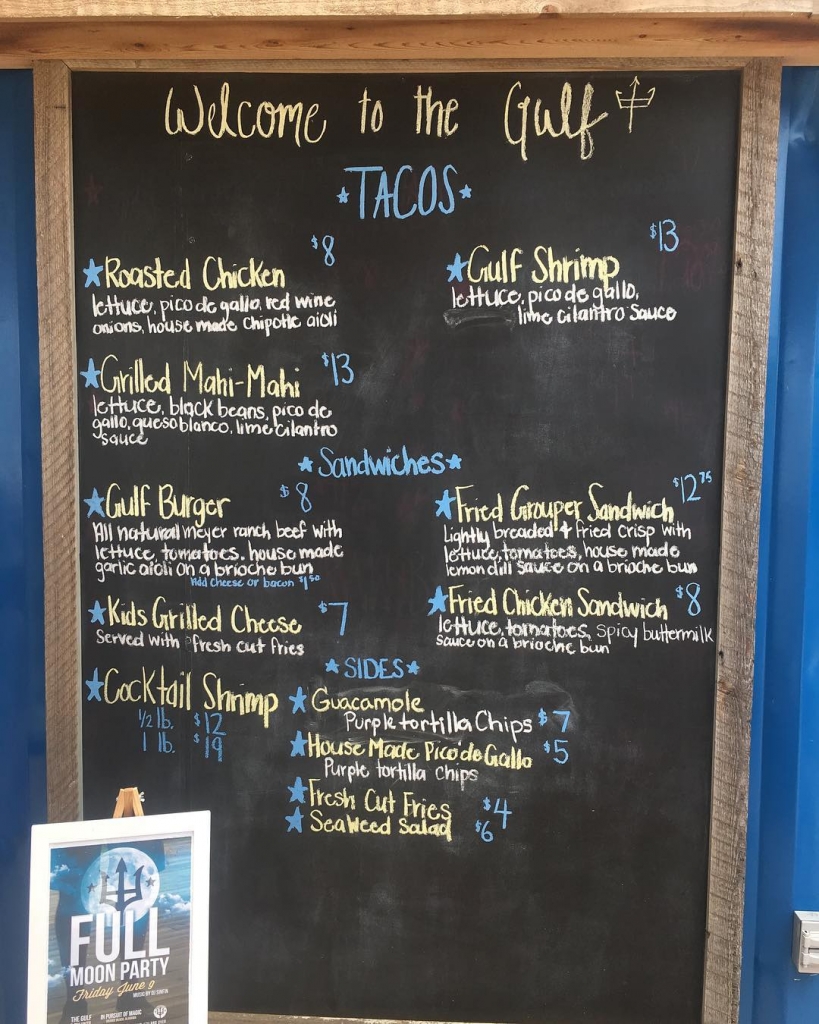 Welcome to the Gulf
TACOS
Roasted Chicken $8
lettuce, pico de gallo, red wine
onions, house made chipotle aioli
Gulf Shrimp $13
lettuce, pico de gallo,
lime cilantro sauce
Grilled Mahi-Mahi $13
lettuce, black beans, pico de
gallo, queso blanco, lime cilantro
sauce
Sandwiches
Gulf Burger $8
All natural meyer ranch beef with
lettuce, tomatoes, house made
garlic aioli on a brioche bun
Add cheese or bacon $1.50
Fried Grouper Sandwich $12.75
Lightly breaded & fried crisp with
lettuce, tomatoes, house made
lemon dill sauce on a brioche bun
Kids Grilled Cheese $7
Served with fresh cut fries
Fried Chicken Sandwich $8
lettuce, tomatoes, spicy buttermilk
sauce on a brioche bun
Cocktail Shrimp
1/2 lb. $12
1 lb. $19
SIDES
Guacamole
Purple tortilla Chips $7
House Made Pico de Gallo $5
Purple tortilla chips
Fresh Cut Fries $4
SeaWeed Salad $6
FULL
MOON PARTY
Friday June 9
THE GULF
IN PURSUIT OF MAGIC